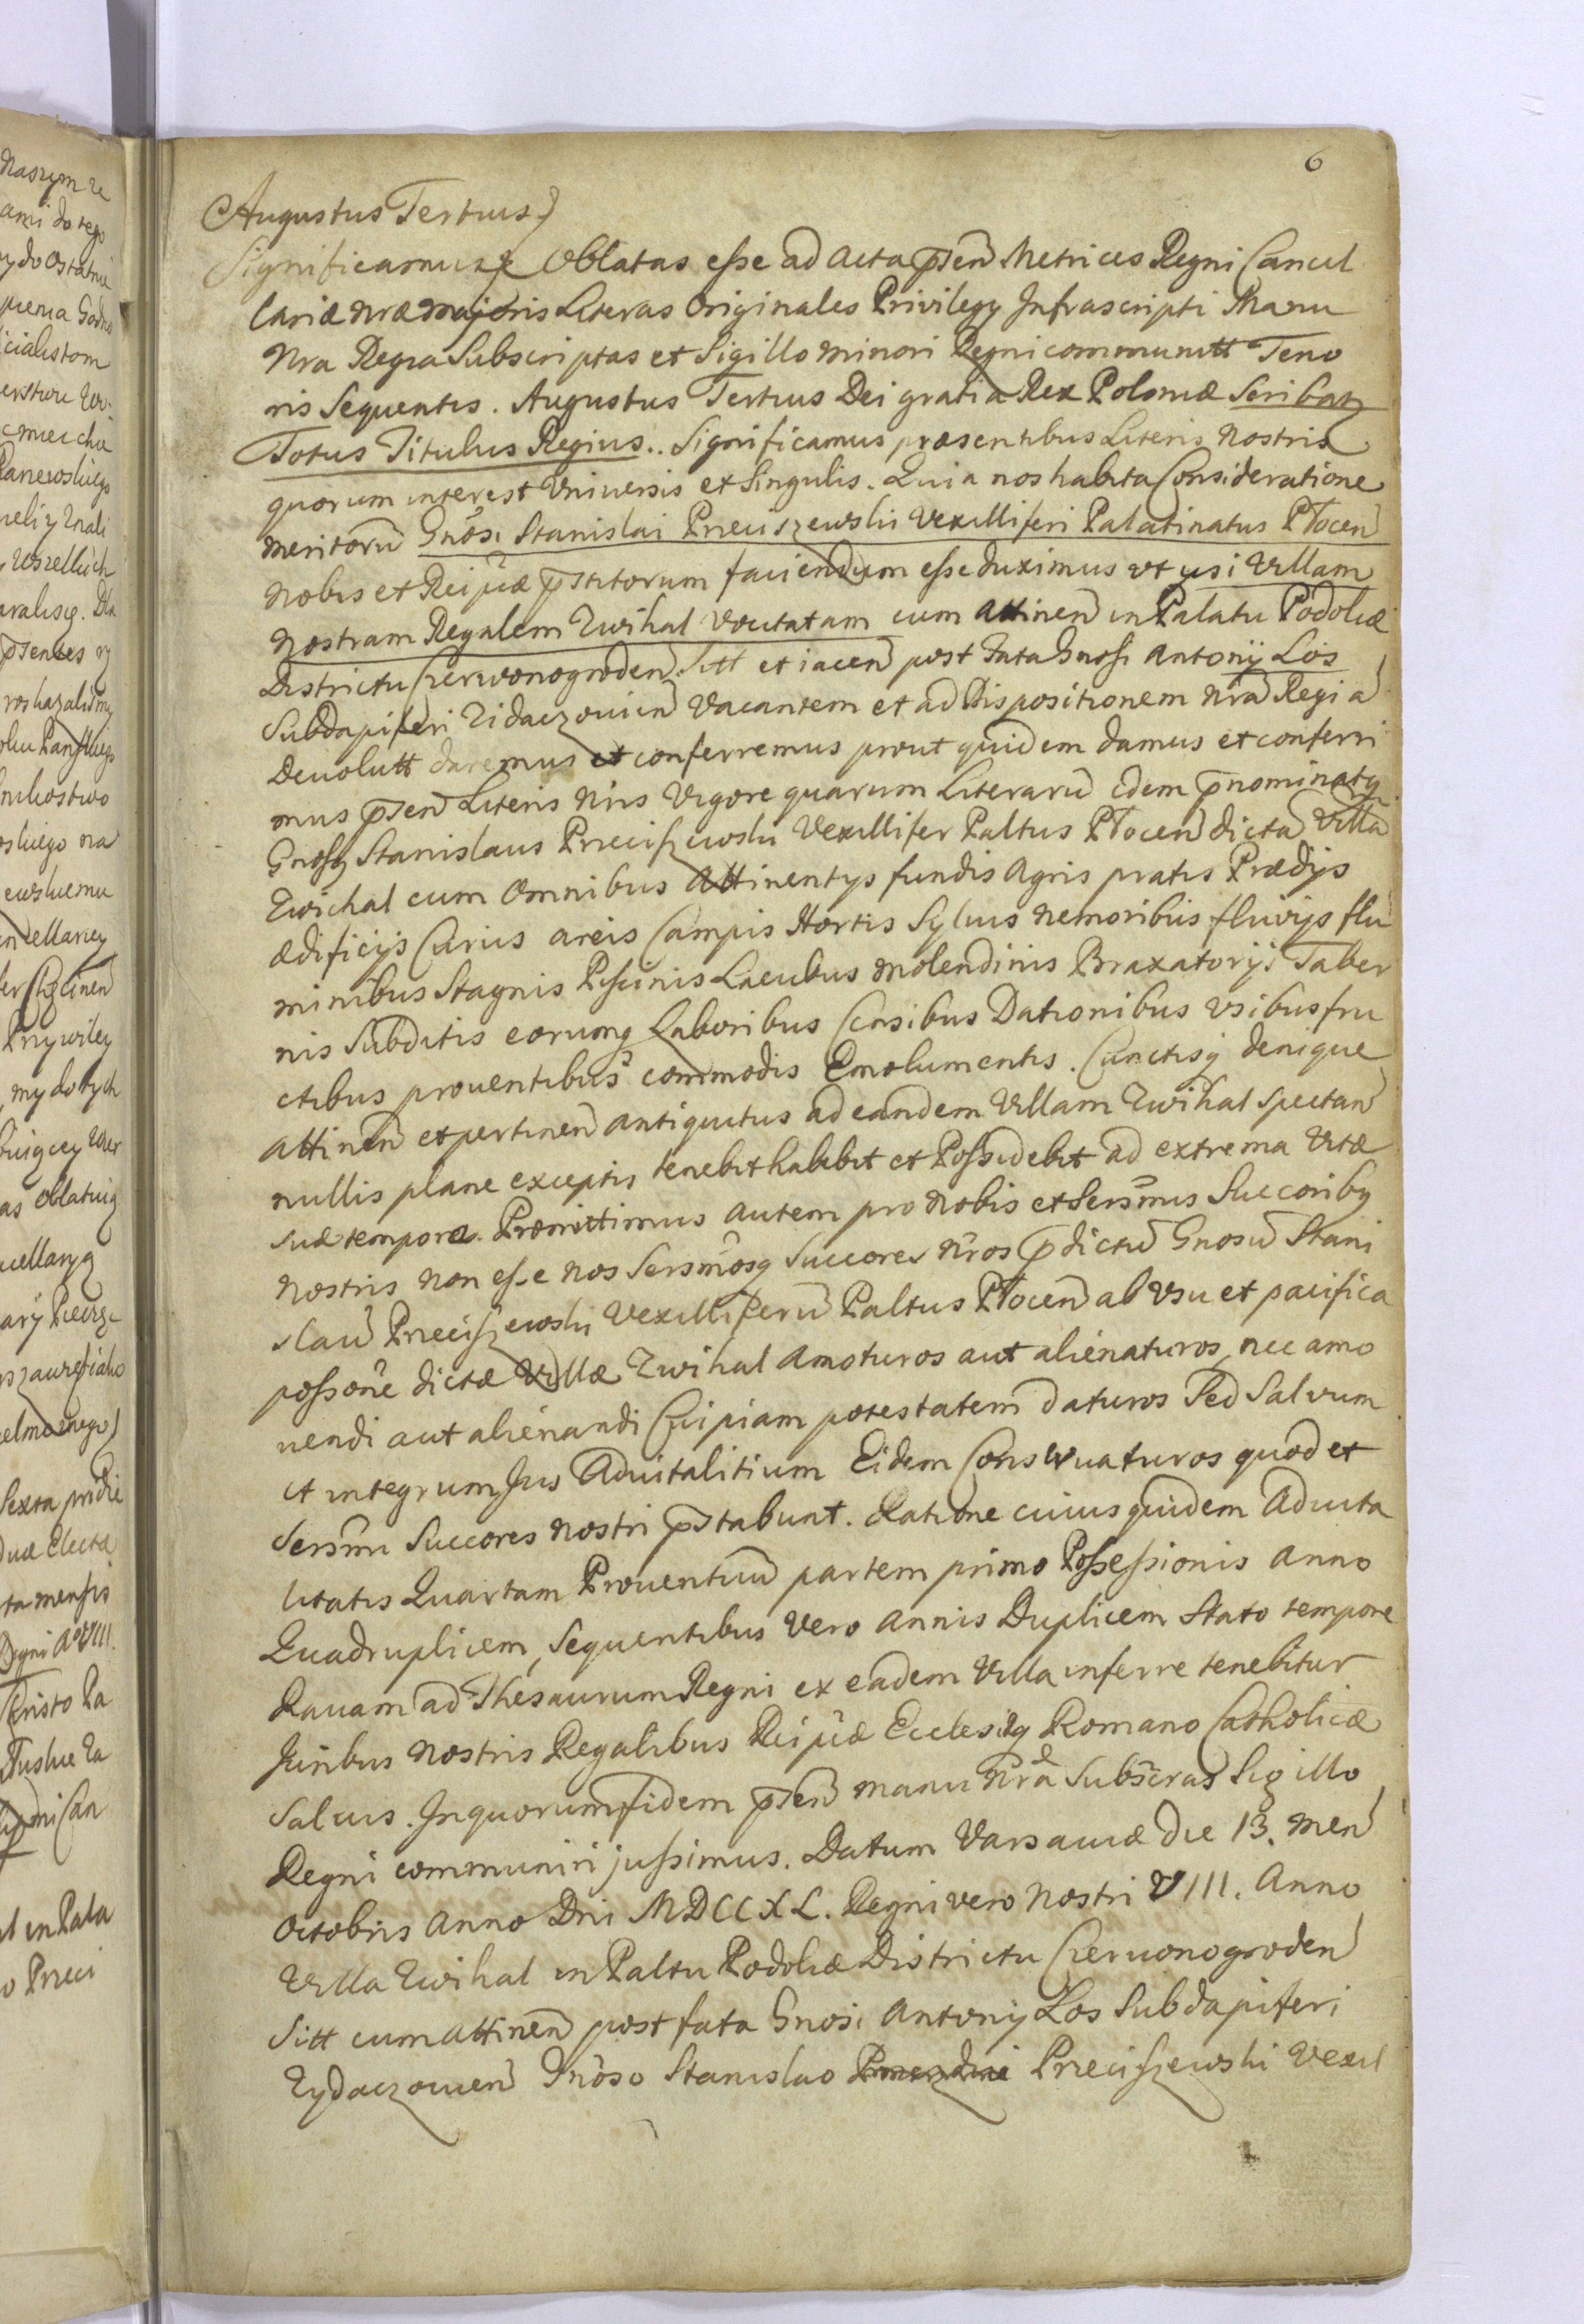 6
Augustus Tertius
Significamus Oblatas esse ad Acta p̄sen̄ Metrices Regni Cancel
lariæ nræ majoris Literas Originales Privilegy Infrascripti Manu
Nra Regia Subscriptas et Sigillo minori Regni communitt Teno
ris Sequentis. Augustus Tertius Dei gratia Rex Poloniæ Scribatz
Totus Titulus Regius.. Significamus præsentibus Literis Nostris
quorum interest Vniversis et Singulis. Quia nos habita Consideratione
meritorū Gnosi Stanislai Przeciszewski Vexilliferi Palatinatus Plocen̄
Nobis et Reipcæ p̄stitorum faciendum esse duximus vt ipsi Villam
Nostram Regalem Zwihal Vocitatam cum Attinen̄ in Palatu Podoliæ
Districtu Czerwonogroden̄ Sitt et iacen̄ post Fata Gnosi Antonij Łos
Subdapiferi Zidaczovien̄ Vacantem et ad Dispositionem Nrā Regiā
Devolutt daremus et conferremus prout quidem damus et conferri
mus p̄sen̄ Literis Nris Vigore quarum Literarū idem p̄nominatq
Gnosq Stanislaus Przeciszewski Vexillifer Paltus Plocen̄ dictā Villā
Zwichal cum Omnibus Attinentys fundis Agris pratis Prædijs
ædificijs Curiis areis Campis Hortis Sylvis Nemoribus fluvijs flu
minibus Stagnis Piscinis Lacubus Molendinis Braxatorijs Taber
nis Subditis eorumq Laboribus Censibus Dationibus vsibus fru
ctibus proventibus commodis Emolumentis. Cunctisq denique
Attinen̄ et pertinen̄ antiquitus ad eandem Villam Zwihal Spectan̄
nullis plane exceptis tenebit habebit et Possidebit ad extrema Vitæ
suæ tempora. Promittimus autem pro Nobis et Sersmis Succoribq
Nostris Non esse Nos Sersmosq Succores Nros p̄dictū Gnosū Stani
slaū Przeciszewski Vexilliferū Paltus Plocen̄ ab Vsu et pacifica
possone dictæ Villæ Zwihal Amoturos aut alienaturos, nec amo
vendi aut alienandi Cuipiam potestatem daturos Sed Salvum
et integrum Jus Advitalitium Eidem Conservaturos quod et
Sersmi Succores Nostri p̄stabunt. Ratione cuius quidem Advita
litatis Quartam Proventuū partem primo Possessionis Anno
Quadruplicem, Sequentibus Vero Annis Duplicem Stato tempore
Ravam ad Thesaurum Regni ex eadem Villa inferre tenebitur
Juribus Nostris Regalibus Reipcæ Ecclesiæq Romano Catholicæ
Salvis. In quorum fidem p̄sen̄ manu Nrā Subscras Sigillo
Regni communiri jussimus. Datum Varsaviæ Die 13. Men̄
Octobris Anno Dni MDCCXL. Regni vero Nostri VIII. Anno
Villa Zwihal in Paltu Podoliæ Districtu Czervonogroden̄
Sitt cum attinen̄ post fata Gnosi Antonij Łos Subdapiferi
Zydaczovien̄ Gnoso Stanislao Przeciszewski Vexil